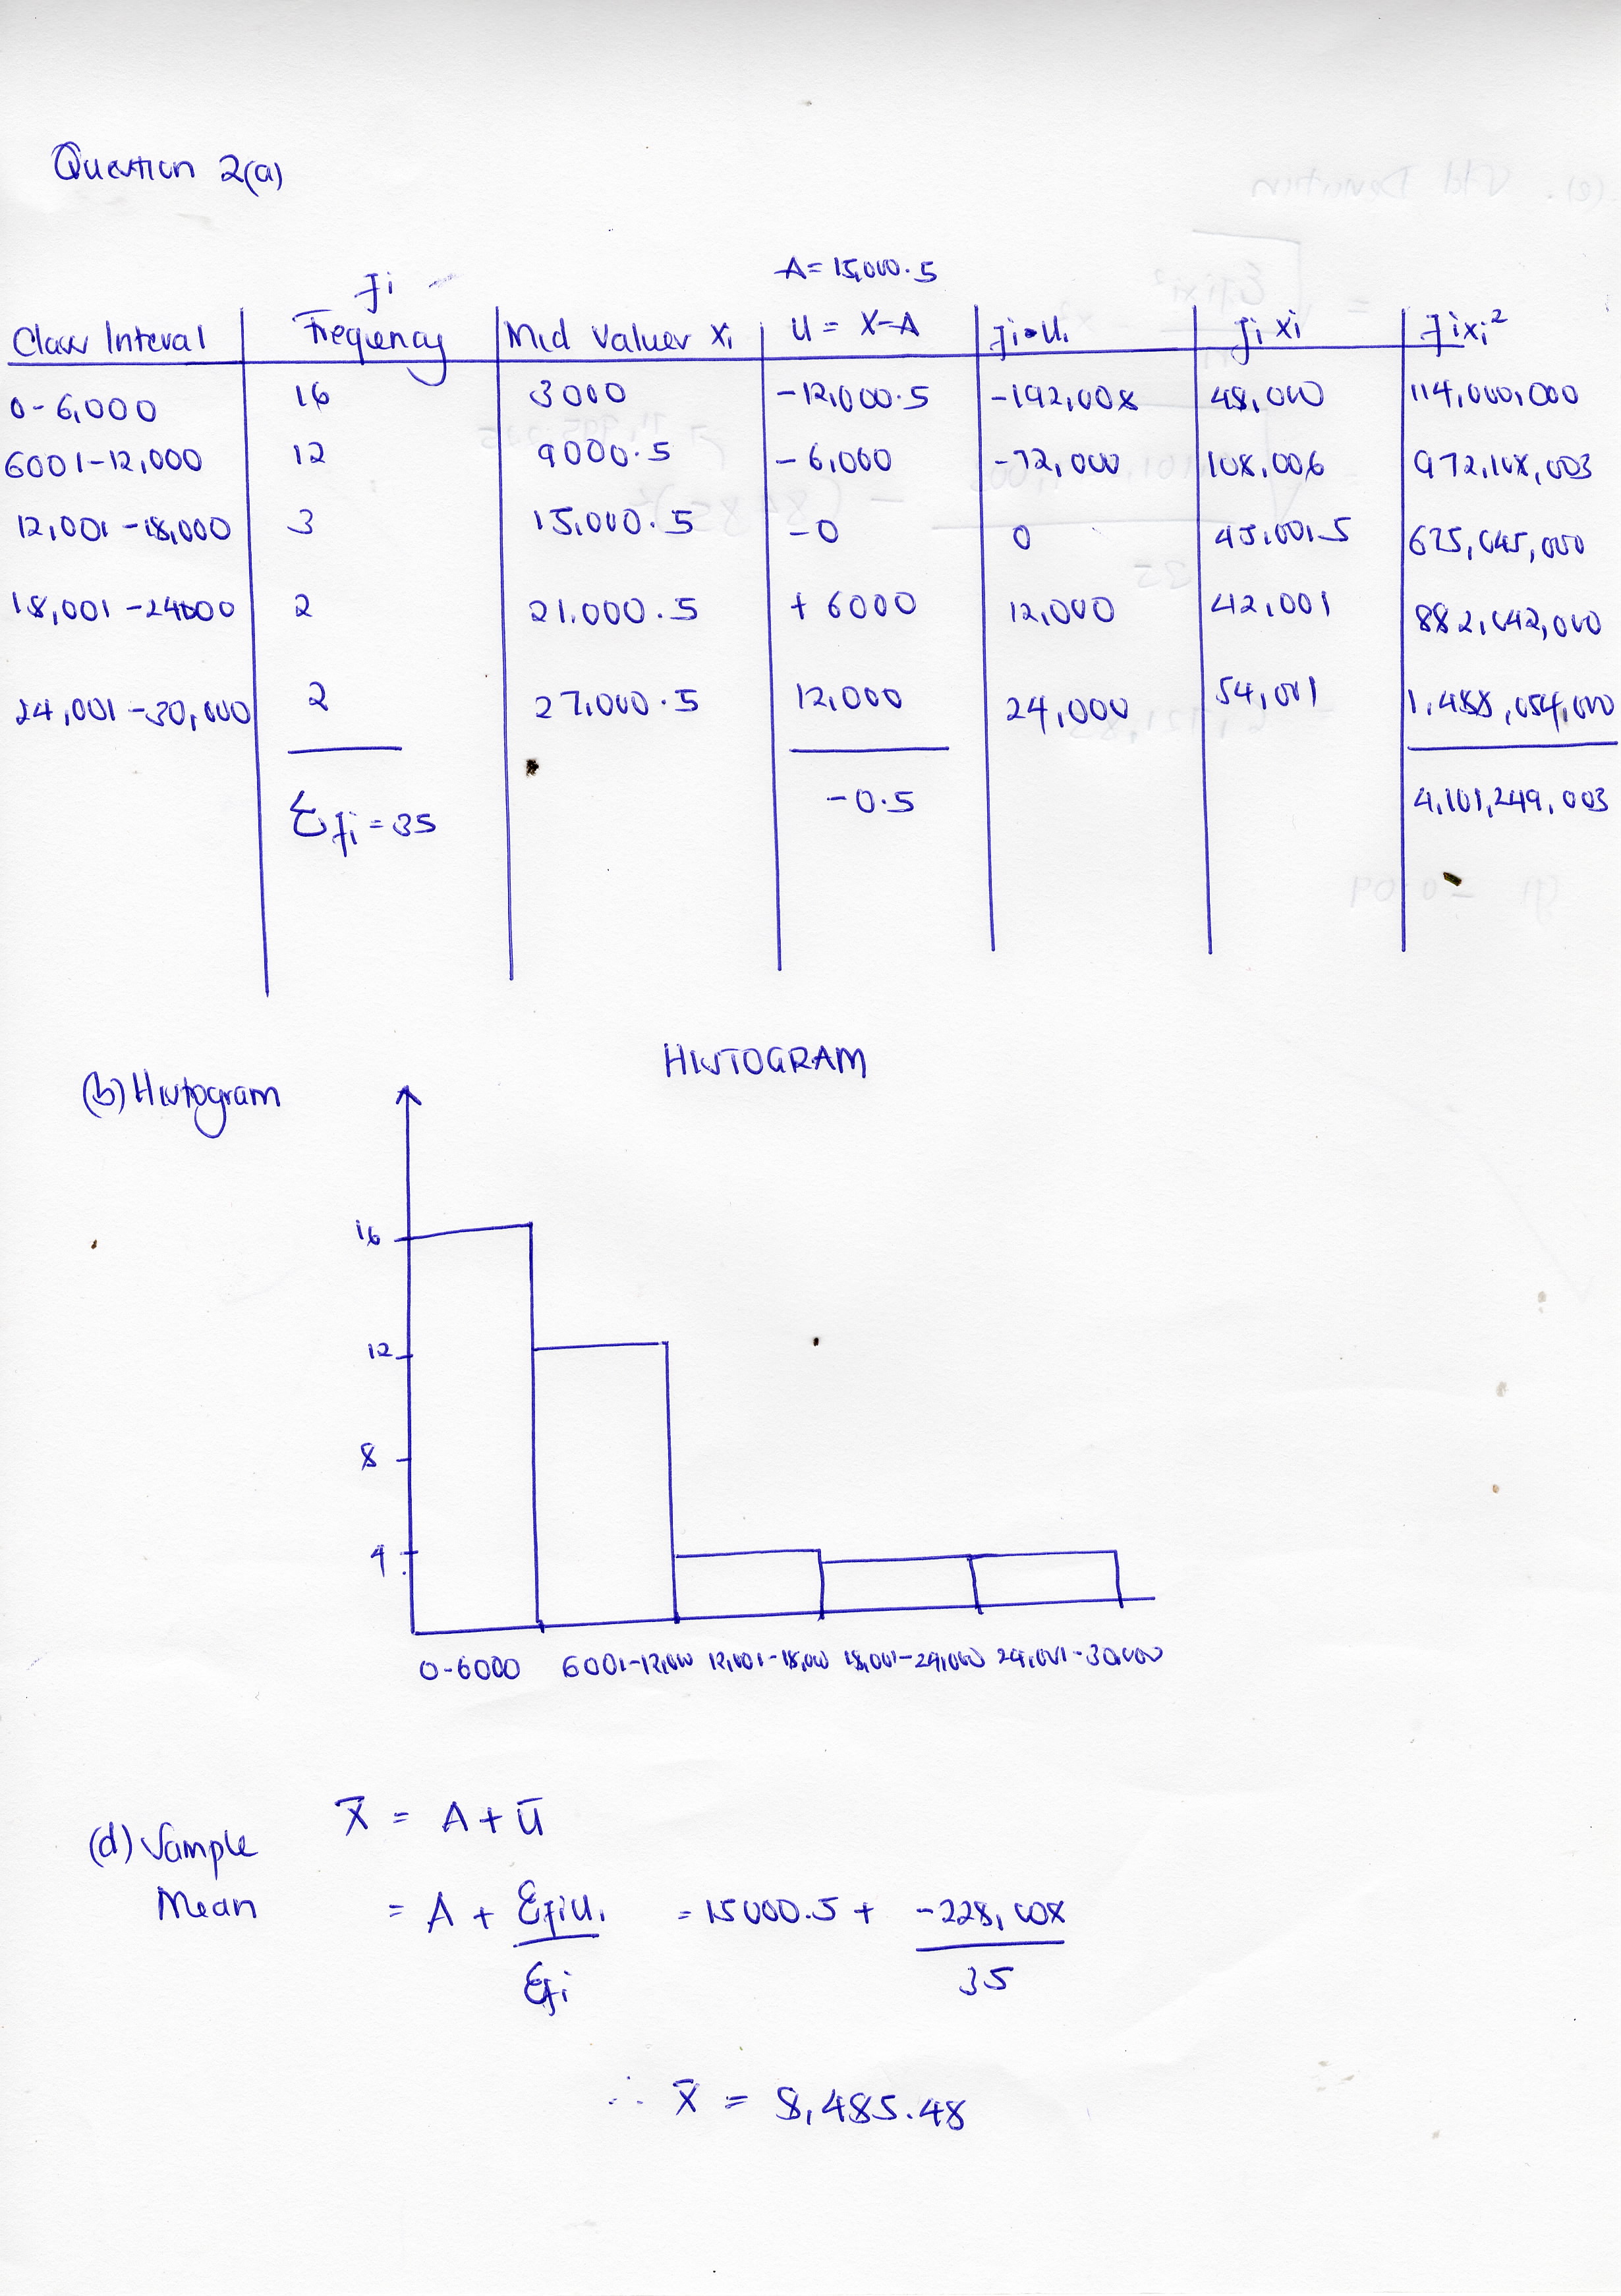 Question 2(a)
fi
A= 15,000.5
Class Interval Frequency Mid Values Xi U = X-A fi•Ui fi xi fixi²
0-6,000 16 3000 -12,000.5 -192,008 48,000 114,000,000
6001-12,000 12 9000.5 -6,000 -72,000 108,006 972,108,003
12,001-18,000 3 15,000.5 -0 0 45,001.5 675,045,000
18,001-24000 2 21,000.5 + 6000 12,000 42,001 882,042,000
24,001-30,000 2 27,000.5 12,000 24,000 54,001 1,458,054,000
Σfi = 35 -0.5 4,101,249,003
HISTOGRAM
(b) Histogram
16
12
8
4
0-6000 6001-12,000 12,001-18,000 18,001-24,000 24,001-30,000
(d) Sample
Mean
X̄ = A + Ū
= A + Σfiui = 15000.5 + -228,008
Σfi 35
∴ X̄ = 8,485.48